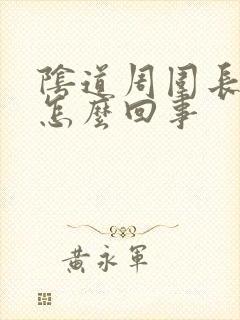 陰道周圍長
怎麼回事
黃永軍